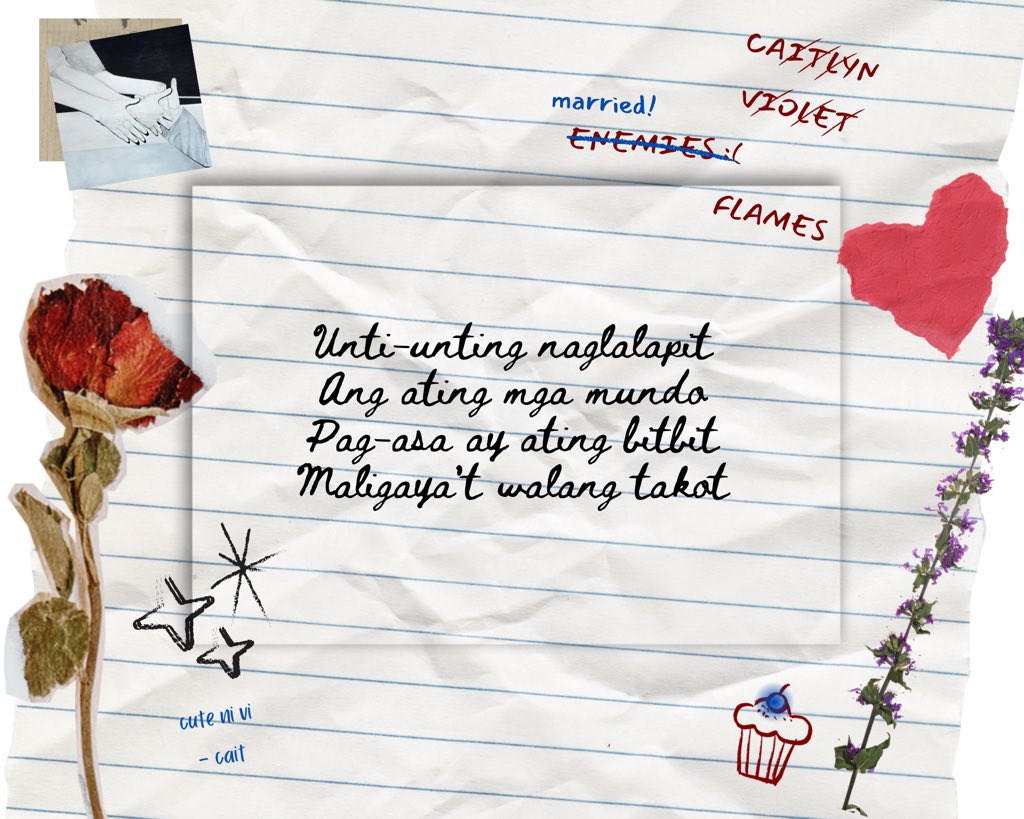 CAITLYN
VIOLET
married!
ENEMIES :(
FLAMES
Unti-unting naglalapit
Ang ating mga mundo
Pag-asa ay ating bitbit
Maligaya't walang takot
cute ni vi
- cait